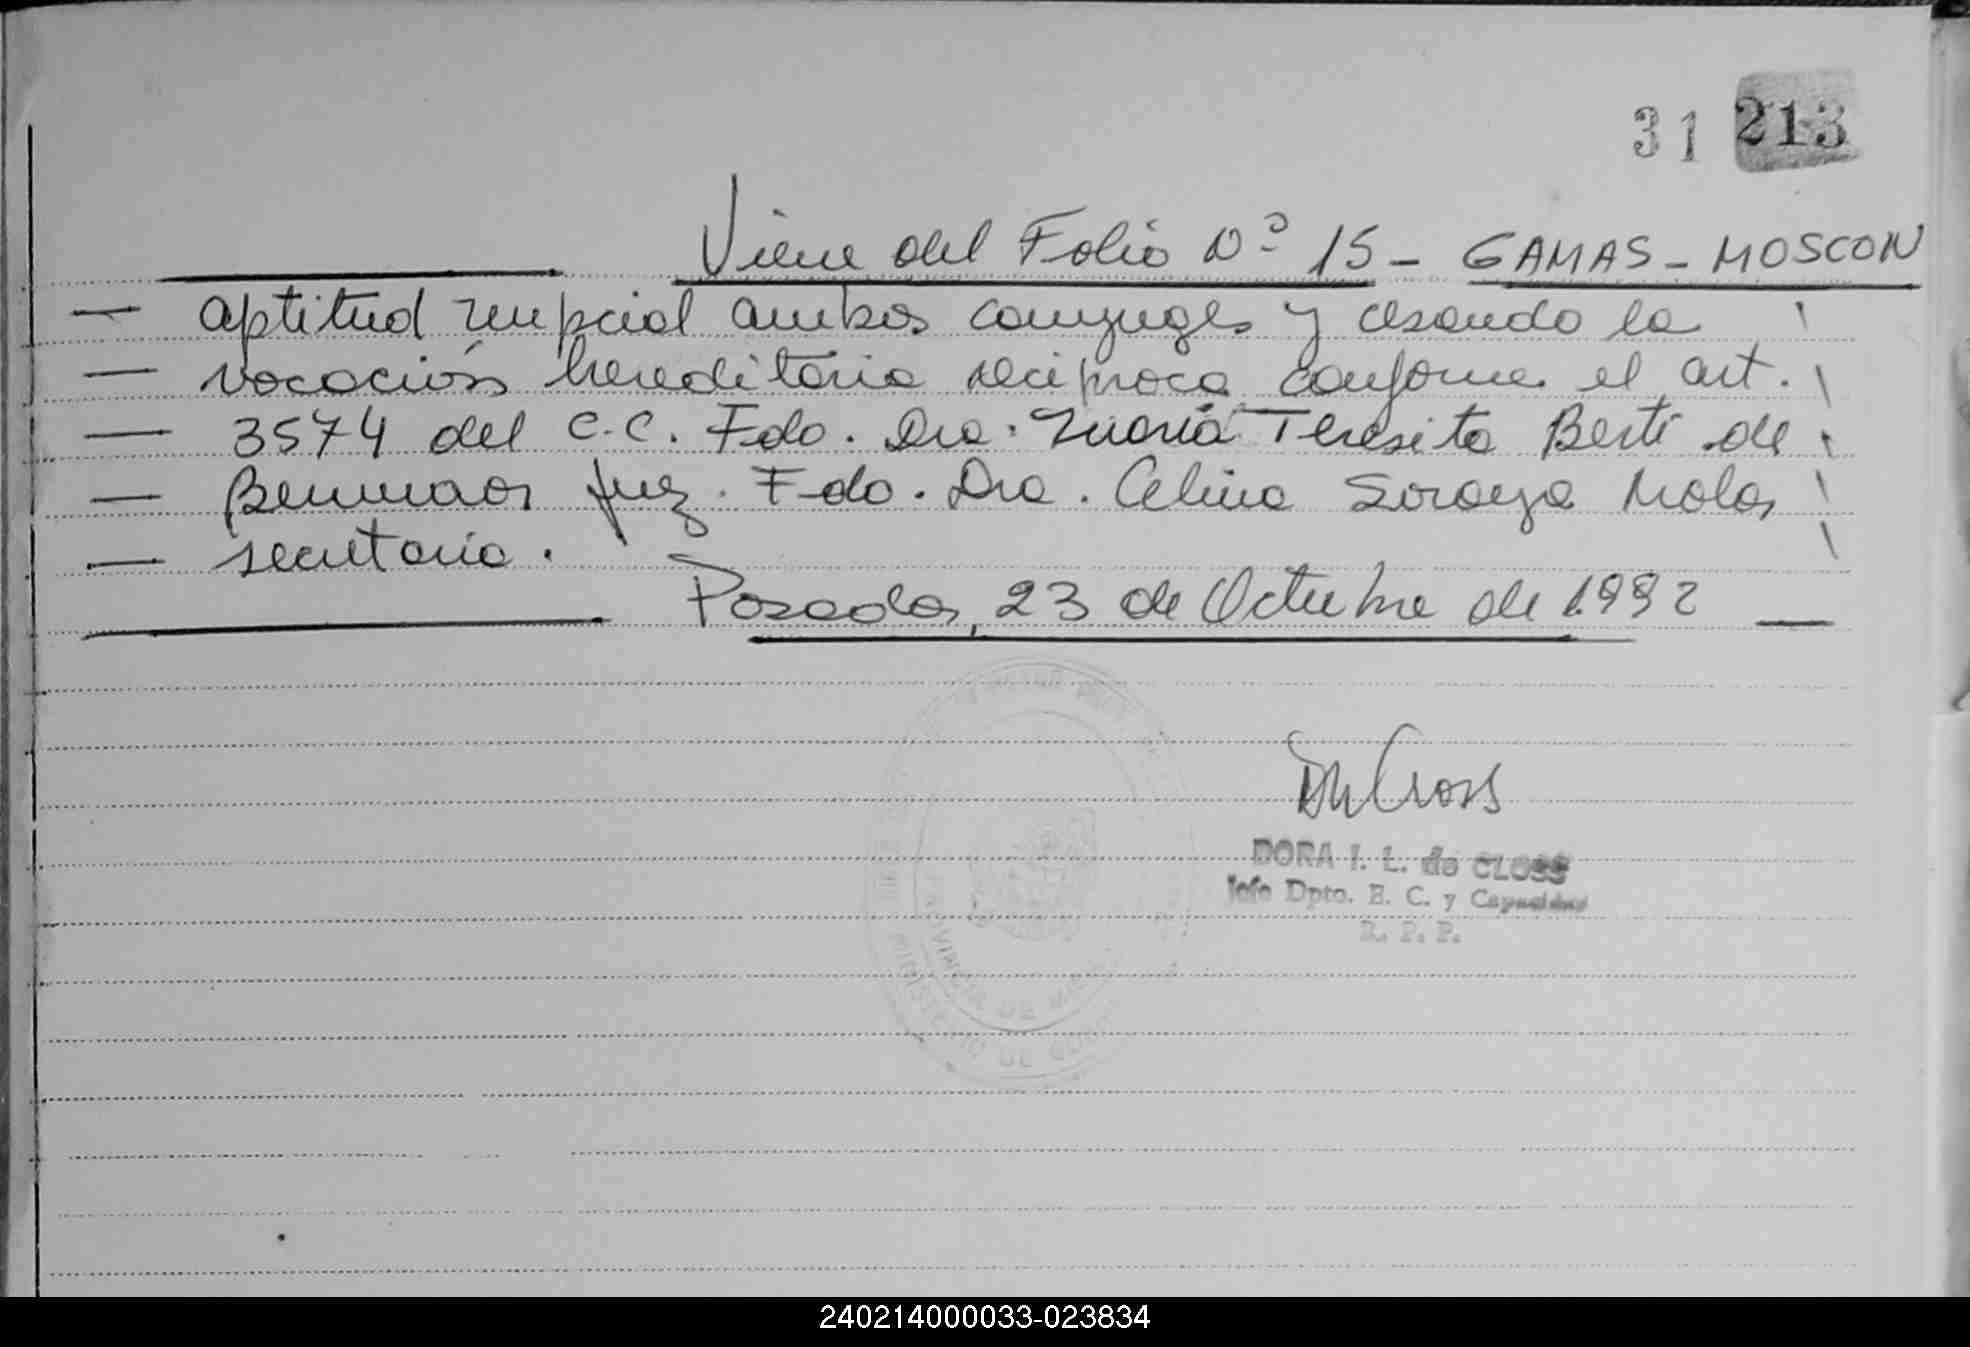 31 213
Viene del Folio Nº 15 - GAMAS - MOSCON
— aptitud nupcial ambos conyuges y cesando la
— vocación hereditaria reciproca conforme el art.
— 3574 del C.C. Fdo. Dra. María Teresita Berti de
— juez. Fdo. Dra. Celina Soraya Molas
— secretaria.
Posadas, 23 de Octubre de 1992 —
DORA I. L. de CLOSS
Jefe Dpto. E. C. y Capacidad
R. P. P.
PROVINCIA DE
MINISTERIO DE
240214000033-023834